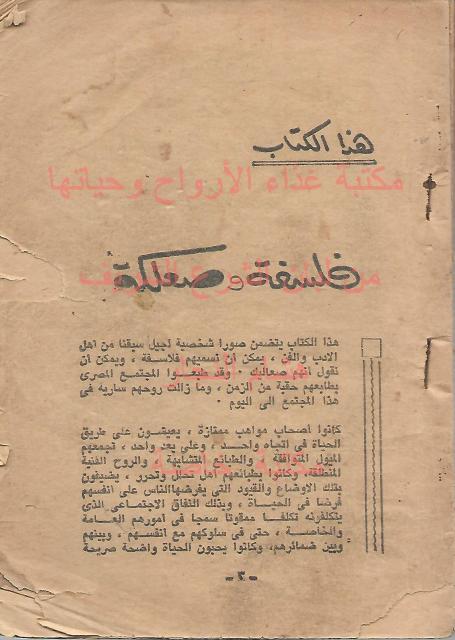 هذا الكتاب
مكتبة غذاء الأرواح وحياتها
فلسفة وصعلكة
هذا الكتاب يتضمن صورا شخصية لجيل سبقنا من أهل
الادب والفن ، يمكن أن نسميهم فلاسفة ، ويمكن أن
نقول انهم صعاليك ٠ وقد طبعوا المجتمع المصرى
بطابعهم حقبة من الزمن ، وما زالت روحهم ساريه فى
هذا المجتمع الى اليوم ٠
كانوا أصحاب مواهب ممتازة ، يعيشون على طريق
الحياة فى اتجاه واحد ، وعلى بعد واحد ، تجمعهم
الميول المتوافقة ، والطبائع المتشابهة ، والروح الفنية
المنطلقة، وكانوا بطابعهم أهل تحلل وتحرر ، يضيقون
بتلك الاوضاع والقيود التى يفرضها الناس على أنفسهم
فرضا فى الحياة ، وبذلك النفاق الاجتماعى الذى
يتكلفونه تكلفا ممقوتا سمجا فى أمورهم العامة
والخاصة ، حتى فى سلوكهم مع أنفسهم ، وبينهم
وبين ضمائرهم، وكانوا يحبون الحياة واضحة صريحة
ـ ٣ ـ